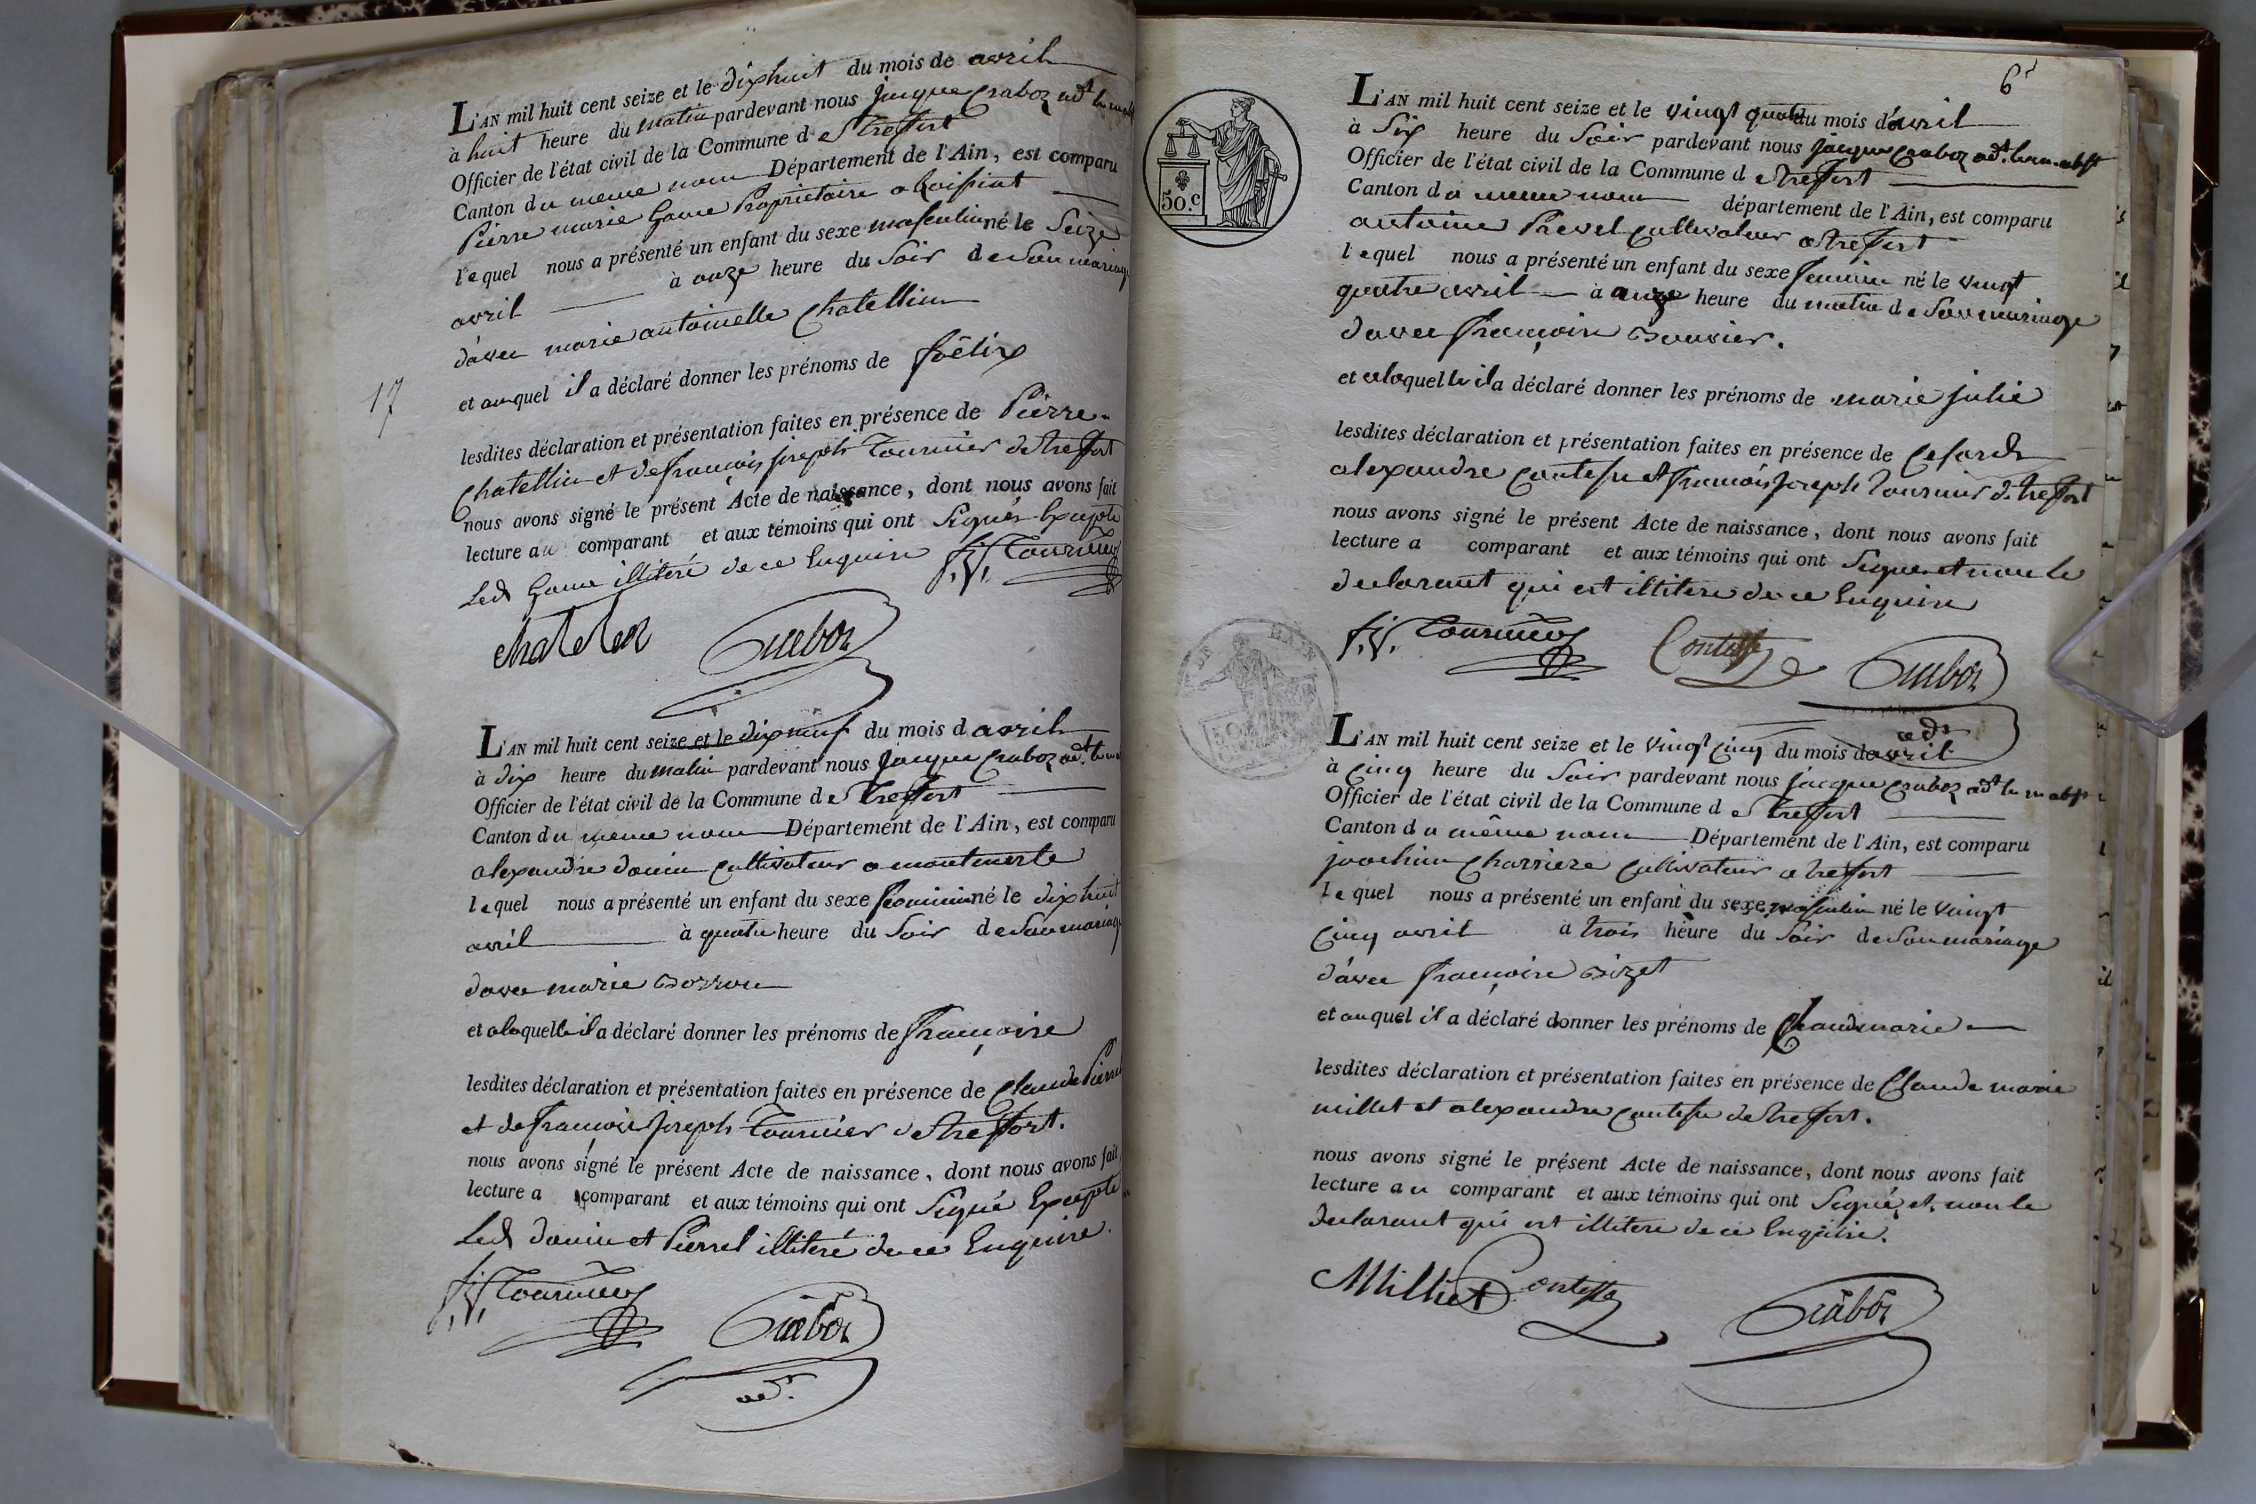 L'AN mil huit cent seize et le dixhuit du mois de avril
à huit heure du matin pardevant nous jacque Craboz adt
Officier de l'état civil de la Commune de treffort
Canton du meme nom Département de l'Ain, est comparu
Pierre marie Game Proprietaire a
lequel nous a présenté un enfant du sexe masculin né le Seize
avril à onze heure du Soir de Son mariage
d'avec marie antoinette Chatellin
17
et auquel il a déclaré donner les prénoms de foélix
lesdites déclaration et présentation faites en présence de Pierre
Chatellin et de francois joseph Tournier de treffort
nous avons signé le présent Acte de naissance, dont nous avons fait
lecture au comparant et aux témoins qui ont Signés Excepté
Led Game illiteré de ce Enquire f.j. Tournier
chatelen Craboz
L'AN mil huit cent seize et le dixneuf du mois d avril
à dix heure du matin pardevant nous jacque Craboz adt
Officier de l'état civil de la Commune de treffort
Canton du meme nom Département de l'Ain, est comparu
alexandre Cultivateur a
lequel nous a présenté un enfant du sexe feminin né le dixhuit
avril à quatre heure du Soir de Son mariage
d'avec marie
et a laquelle il a déclaré donner les prénoms de françoise
lesdites déclaration et présentation faites en présence de Claude Pierrel
et de francois joseph Tournier de treffort.
nous avons signé le présent Acte de naissance, dont nous avons fait
lecture a comparant et aux témoins qui ont Signé Excepté
Led et Pierrel illiteré de ce Enquire.
f.j. Tournier Craboz
adt
6
50.c
L'AN mil huit cent seize et le vingt quatre du mois d'avril
à Six heure du Soir pardevant nous jacque Craboz adt
Officier de l'état civil de la Commune de treffort
Canton du meme nom département de l'Ain, est comparu
antoine Prevel Cultivateur a treffort
lequel nous a présenté un enfant du sexe feminin né le vingt
quatre avril à onze heure du matin de Son mariage
d'avec françoise Bouvier.
et a laquelle il a déclaré donner les prénoms de marie julie
lesdites déclaration et présentation faites en présence de
alexandre Contesse et francois joseph Tournier de treffort
nous avons signé le présent Acte de naissance, dont nous avons fait
lecture a comparant et aux témoins qui ont Signé et non le
declarant qui est illitere de ce Enquire
f.j. Tournier Contesse Craboz
adt
L'AN mil huit cent seize et le vingt cinq du mois de avril
à Cinq heure du Soir pardevant nous jacque Craboz adt
Officier de l'état civil de la Commune de treffort
Canton du même nom Département de l'Ain, est comparu
joachim Charriere Cultivateur a treffort
lequel nous a présenté un enfant du sexe masculin né le vingt
Cinq avril à trois heure du Soir de Son mariage
d'avec françoise Bizet
et auquel il a déclaré donner les prénoms de Claud marie
lesdites déclaration et présentation faites en présence de Claude marie
millet et alexandre Contesse de treffort.
nous avons signé le présent Acte de naissance, dont nous avons fait
lecture au comparant et aux témoins qui ont Signé et non le
declarant qui est illitere de ce Enquire.
Milliet Contesse Crabôz